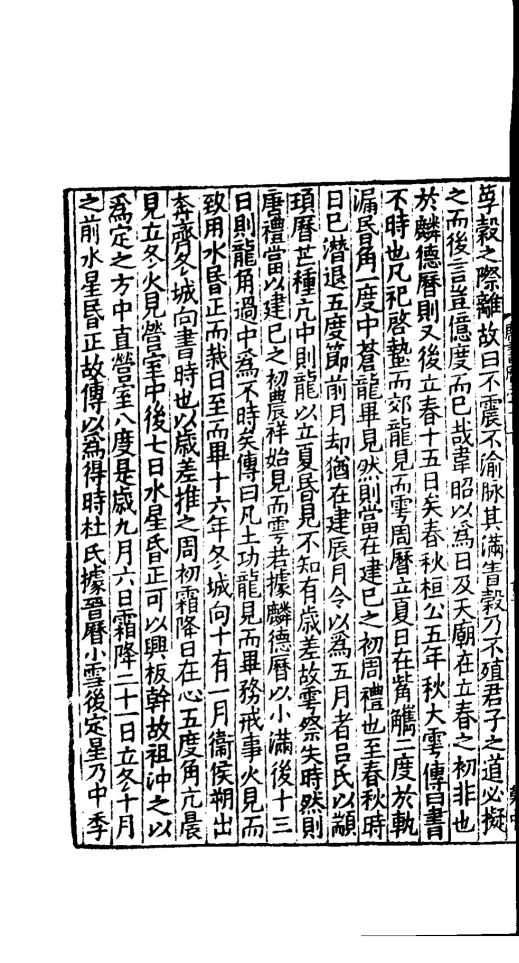 萼穀之際離故曰不震不渝脉其滿眚穀乃不殖君子之道必擬
之而後言豈億度而已哉韋昭以爲日及天廟在立春之初非也
於麟德曆則又後立春十五日矣春秋桓公五年秋大雩傳曰書
不時也凡祀啓蟄而郊龍見而雩周曆立夏日在觜觿二度於軌
漏昏角一度中蒼龍畢見然則當在建巳之初周禮也至春秋時
日已潛退五度節前月却猶在建辰月令以爲五月者吕氏以顓
頊曆芒種亢中則龍以立夏昏見不知有歲差故雩祭失時然則
唐禮當以建巳之初農祥始見而雩若據麟德曆以小滿後十三
日則龍角過中爲不時矣傳曰凡土功龍見而畢務戒事火見而
致用水昏正而栽日至而畢十六年冬城向十有一月衞侯朔出
奔齊冬城向書時也以歲差推之周初霜降日在心五度角亢晨
見立冬火見營室中後七日水星昏正可以興板幹故祖沖之以
爲定之方中直營室八度是歲九月六日霜降二十一日立冬十月
之前水星昏正故傳以爲得時杜氏據晉曆小雪後定星乃中季